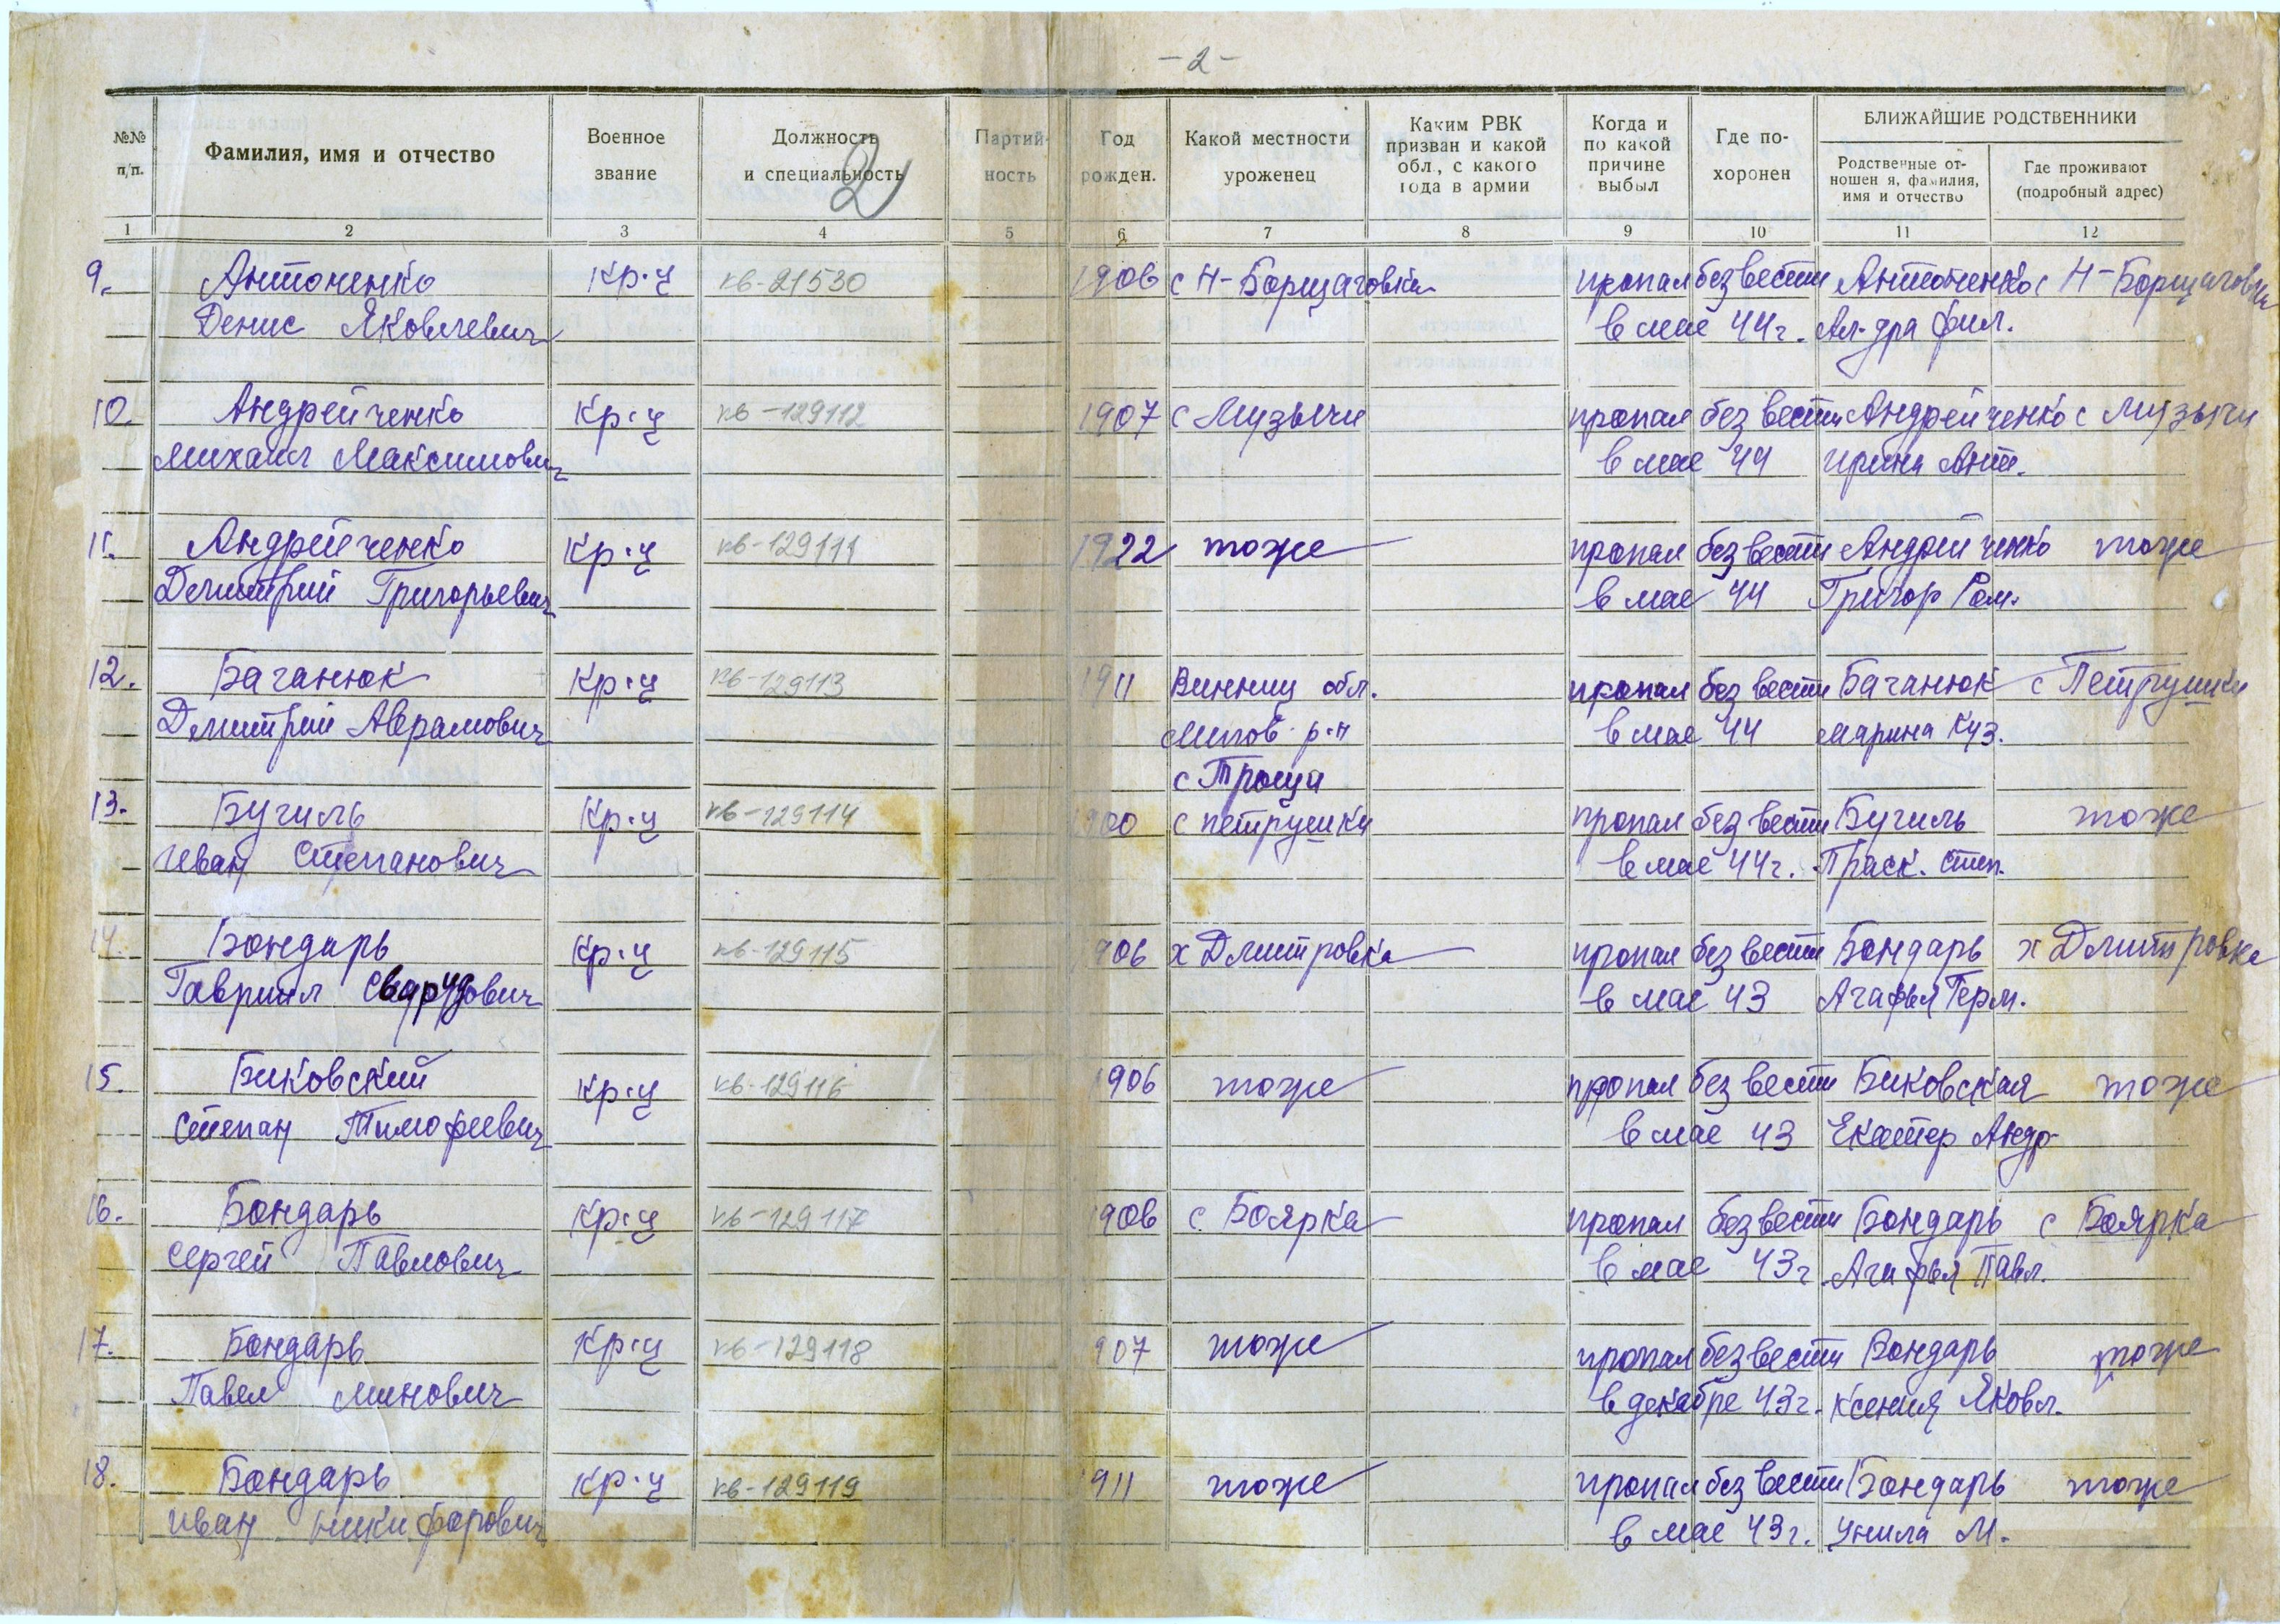 - 2 -
2
№№ п/п.
Фамилия, имя и отчество
Военное звание
Должность и специальность
Партий- ность
Год рожден.
Какой местности уроженец
Каким РВК призван и какой обл, с какого года в армии
Когда и по какой причине выбыл
Где по- хоронен
БЛИЖАЙШИЕ РОДСТВЕННИКИ
Родственные от- ношен я, фамилия, имя и отчество
Где проживают (подробный адрес)
1 2 3 4 5 6 7 8 9 10 11 12
9. Антоненко Кр-ц кв-21530 1906 с Н-Борщаговка пропал без вести Антоненко с Н-Борщаговка
Денис Яковлевич в мае 44г. Ал-дра Фил.
10. Андрейченко Кр-ц кв-129112 1907 с Музычи пропал без вести Андрейченко с Музычи
Михаил Максимович в мае 44 Ирина Ант.
11. Андрейченко Кр-ц кв-129111 1922 тоже пропал без вести Андрейченко тоже
Дмитрий Григорьевич в мае 44 Григор Ром.
12. Бачанюк Кр-ц кв-129113 1911 Винниц обл. пропал без вести Бачанюк с Петрушки
Дмитрий Аврамович р-н в мае 44 Марина Куз.
с Троща
13. Бугиль Кр-ц кв-129114 1900 с Петрушки пропал без вести Бугиль тоже
Иван Степанович в мае 44г. Праск. Степ.
14. Бондарь Кр-ц кв-129115 906 х Дмитровка пропал без вести Бондарь х Дмитровка
Гавриил в мае 43 Агафья Герм.
15. Биковский Кр-ц кв-129116 1906 тоже пропал без вести Биковская тоже
Степан Тимофеевич в мае 43 Екатер Андр
16. Бондарь Кр-ц кв-129117 1906 с. Боярка пропал без вести Бондарь с Боярка
Сергей Павлович в мае 43г. Агафья Павл.
17. Бондарь Кр-ц кв-129118 907 тоже пропал без вести Бондарь тоже
Павел Минович в декабре 43г. Ксения Яковл.
18. Бондарь Кр-ц кв-129119 911 тоже пропал без вести Бондарь тоже
Иван Никифорович в мае 43г. М.